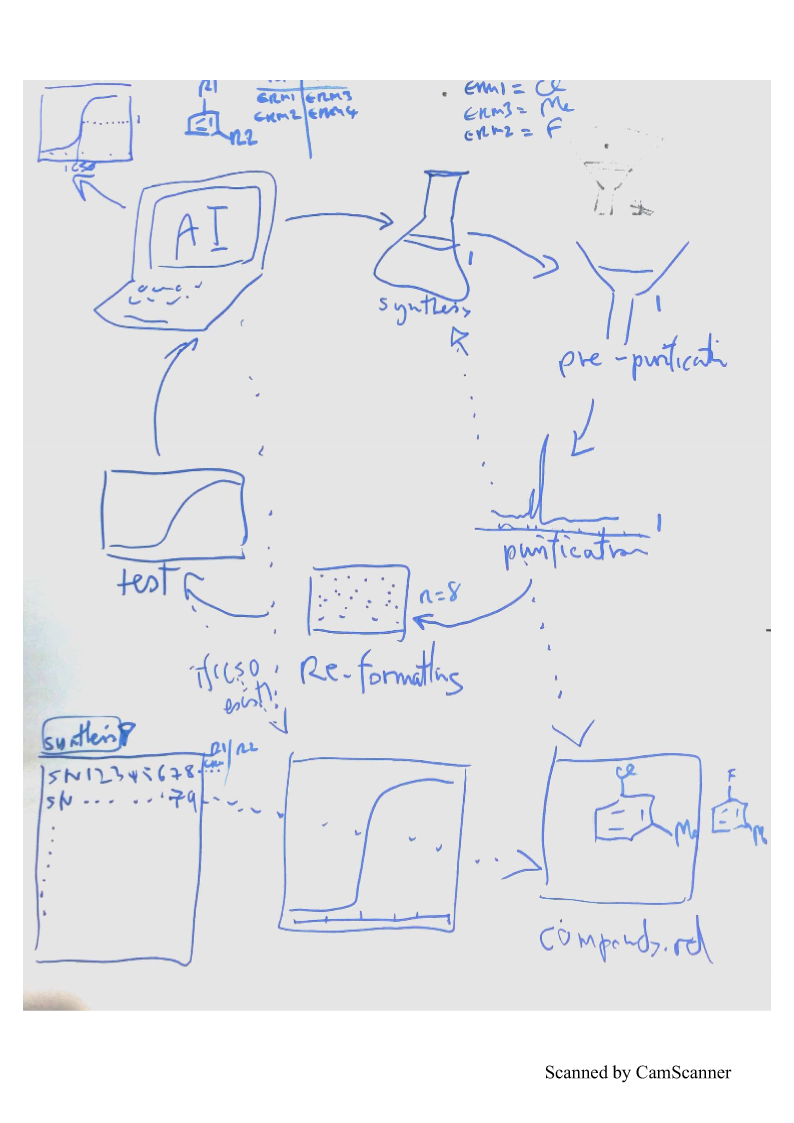 R1
ERM1 ERM3
ERM2 ERM4
R2
ERM1 = Cl
ERM3 = Me
ERM2 = F
IC50
AI
synthesis
1
1
pre-purificati
1
purification
test
n=8
Re-formatting
if IC50
exist?
synthesis
R1/R2
SN12345678....
SN ... ... '79
Cl
Me
F
M
Scanned by CamScanner